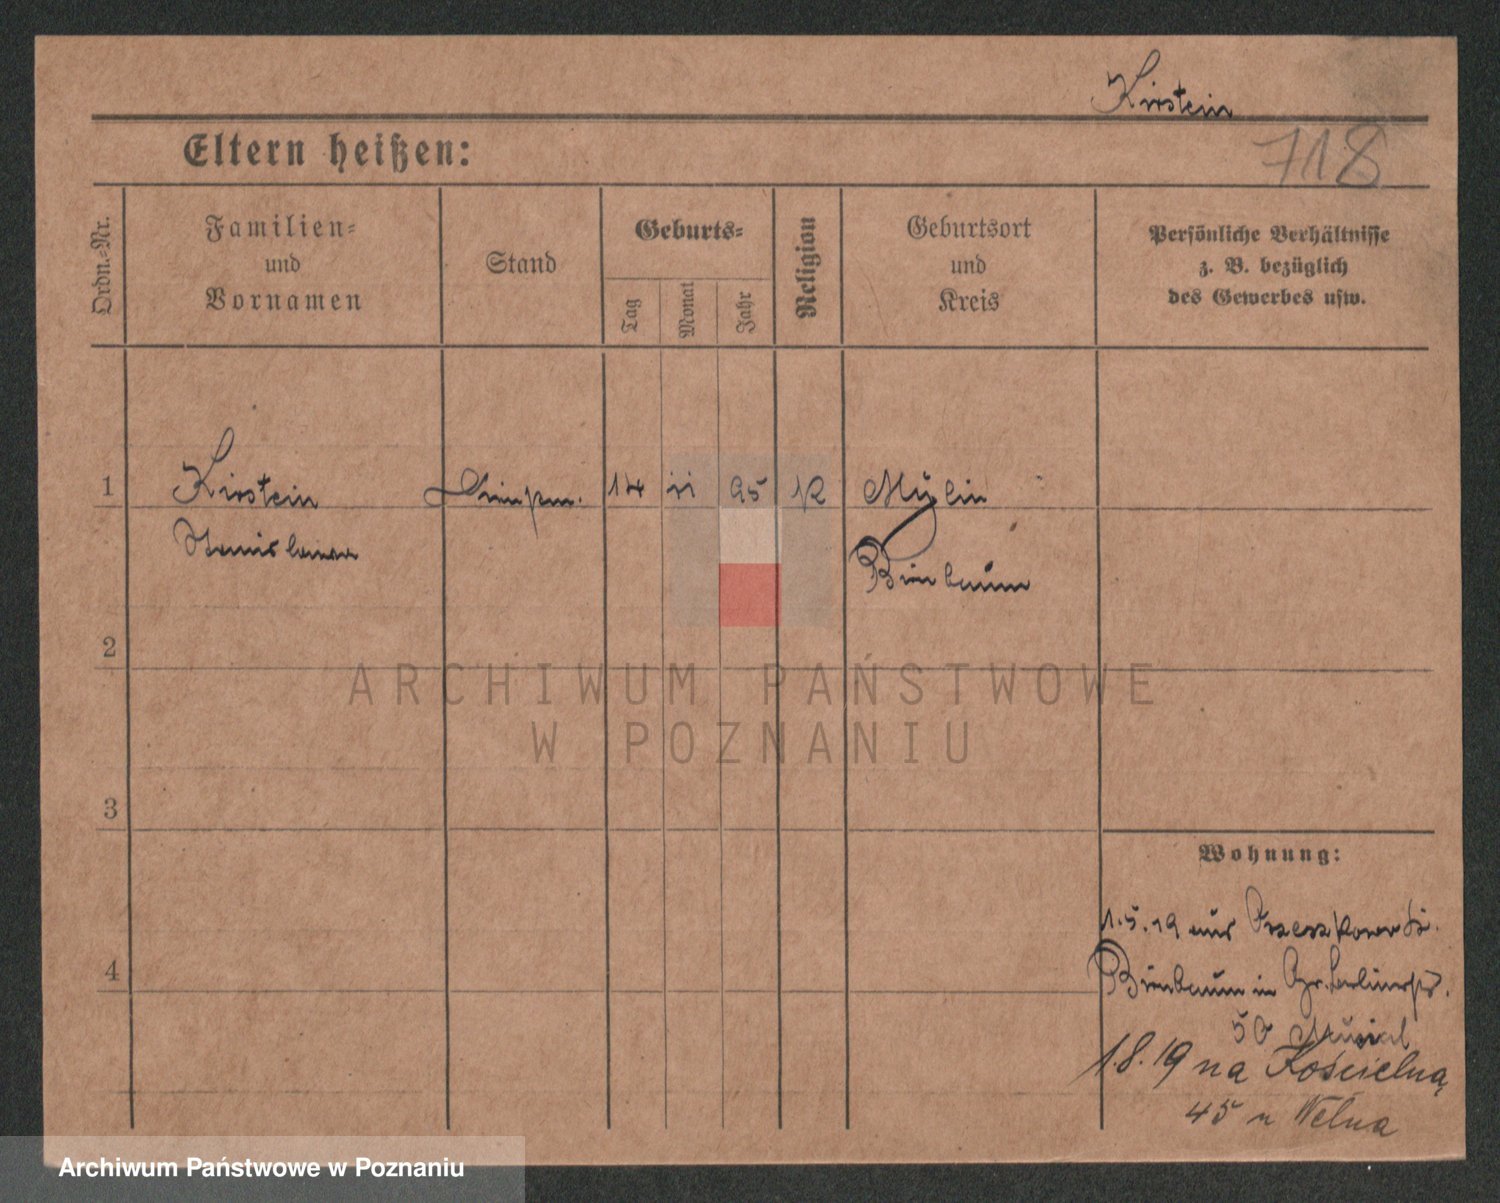 Kirstein
718
Eltern heißen:
Ordn.-Nr.
Familien-
und
Vornamen
Stand
Geburts-
Tag
Monat
Jahr
Religion
Geburtsort
und
Kreis
Persönliche Verhältnisse
z. B. bezüglich
des Gewerbes usw.
1
Kirstein
14
95
K
Mylin
Stanislawa
Birnbaum
2
ARCHIWUM PAŃSTWOWE
W POZNANIU
3
Wohnung:
1.5.19 aus
4
Birnbaum in Gr. Berlinerstr.
50 Musial
1.8.19 na Kościelną
45 u Welna
Archiwum Państwowe w Poznaniu